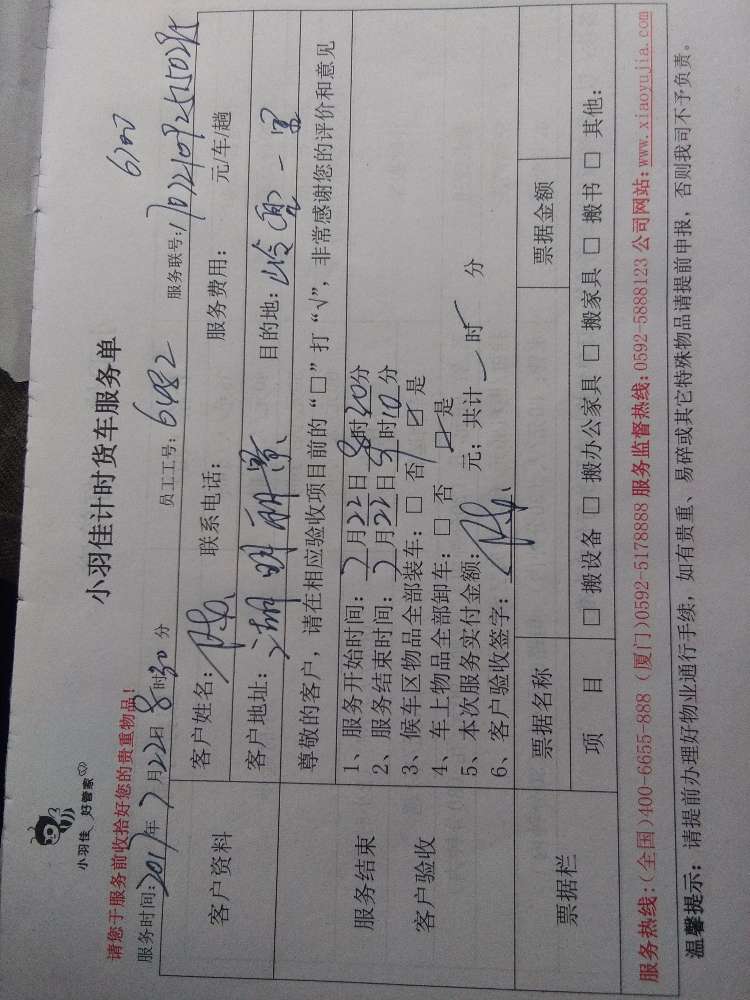 小羽佳 好管家
小羽佳计时货车服务单
6700
请您于服务前收拾好您的贵重物品！
服务时间：2017年7月22日8时30分 员工工号：6482 服务联号：
客户资料
客户姓名： 联系电话： 服务费用： 元/车/趟
客户地址：湖明丽景 目的地：岭兜一里
尊敬的客户，请在相应验收项目前的“□”打“√”，非常感谢您的评价和意见
服务结束
客户验收
1、服务开始时间：7月22日8时20分
2、服务结束时间：7月22日9时10分
3、候车区物品全部装车：□ 否 ☑ 是
4、车上物品全部卸车：□ 否 ☑ 是
5、本次服务实付金额： 元；共计一时 分
6、客户验收签字：
票据栏
票据名称 票据金额
项 目 □ 搬设备 □ 搬办公家具 □ 搬家具 □ 搬书 □ 其他：
服务热线：(全国)400-6655-888 (厦门)0592-5178888 服务监督热线：0592-5888123 公司网站：www.xiaoyujia.com
温馨提示：请提前办理好物业通行手续，如有贵重、易碎或其它特殊物品请提前申报，否则我司不予负责。